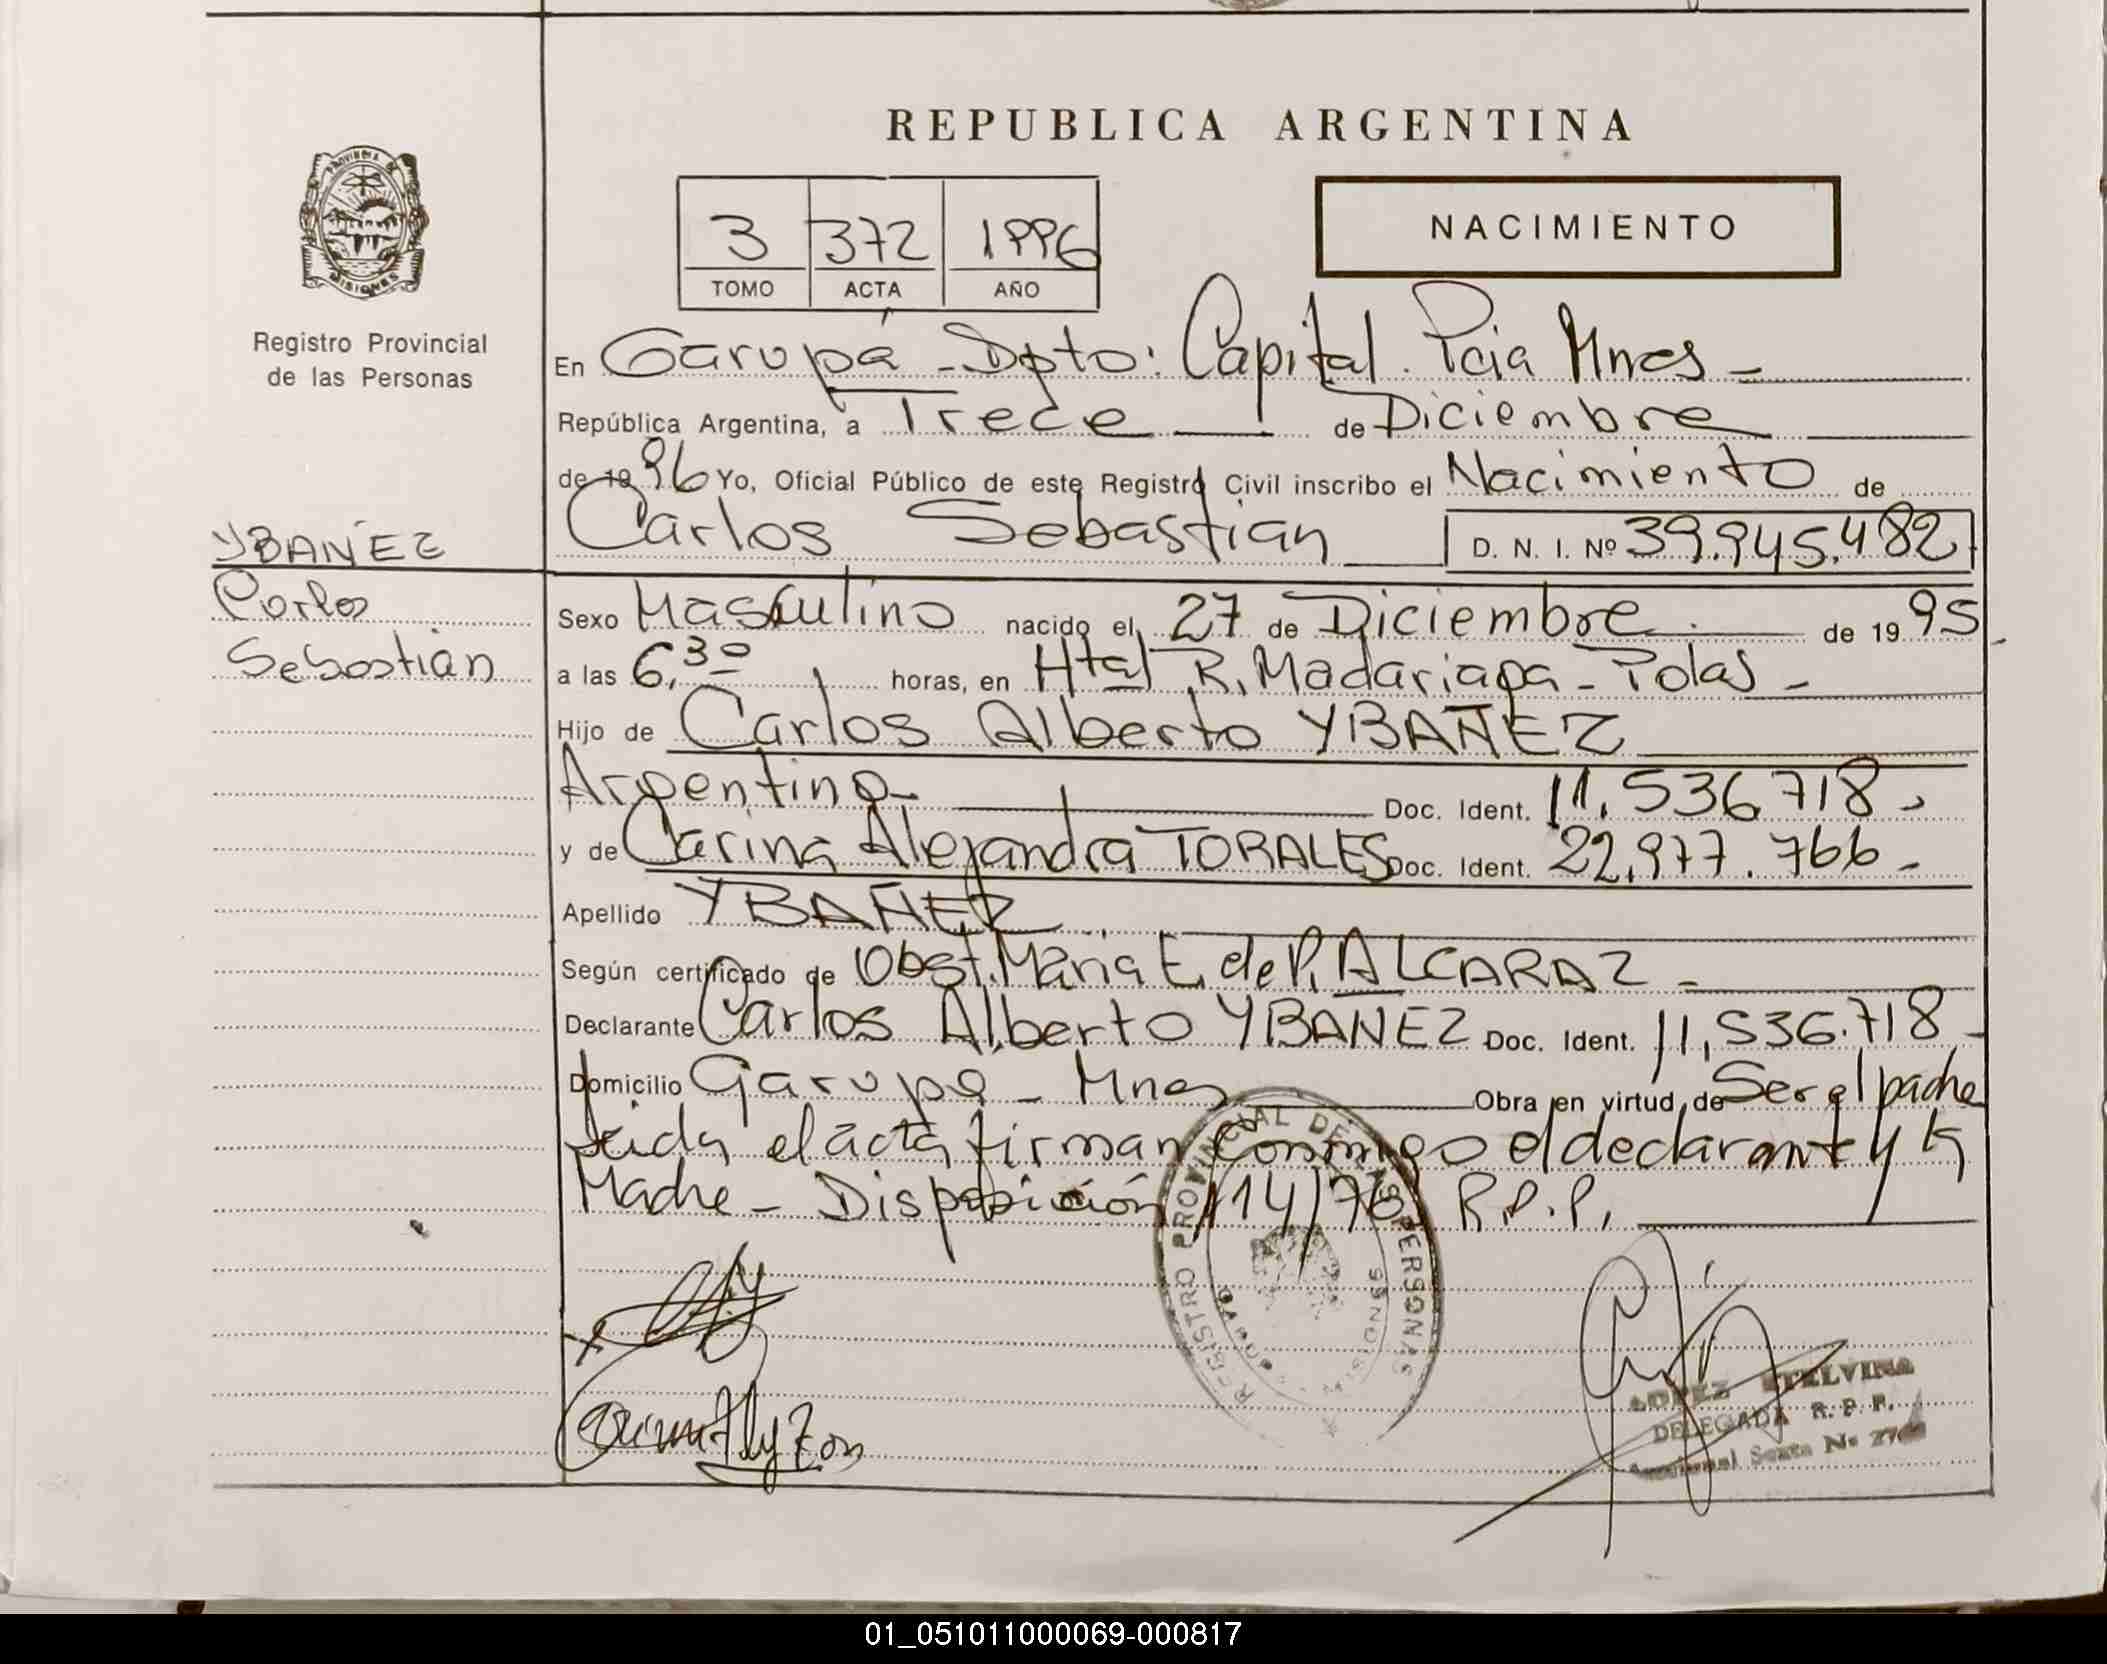 REPUBLICA ARGENTINA
PROVINCIA DE
MISIONES
Registro Provincial
de las Personas
3 372 1996
TOMO ACTA AÑO
NACIMIENTO
En Garupá - Dpto: Capital. Pcia Mnes -
República Argentina, a Trece de Diciembre
de 1996 Yo, Oficial Público de este Registro Civil inscribo el Nacimiento de
Carlos Sebastian D. N. I. Nº 39.945.482
YBAÑEZ
Carlos
Sebastián
Sexo Masculino nacido el 27 de Diciembre. de 1995
a las 6,30 horas, en Htal R. Madariaga - Pdas -
Hijo de Carlos Alberto YBAÑEZ
Argentino - Doc. Ident. 11.536.718 -
y de Carina Alejandra TORALES Doc. Ident. 22.977.766 -
Apellido YBAÑEZ
Según certificado de Obst. Maria E. de P. ALCARAZ -
Declarante Carlos Alberto YBAÑEZ Doc. Ident. 11,536.718 -
Domicilio Garupa - Mnes Obra en virtud de Ser el padre
Leida el acta firman conmigo el declarante y la
Madre - Disposición 114/76 R.P.P.
REGISTRO PROVINCIAL DE LAS PERSONAS
MISIONES
LOPEZ ETELVINA
DELEGADA R. P. P.
Seccional Sexta Nº
01_051011000069-000817